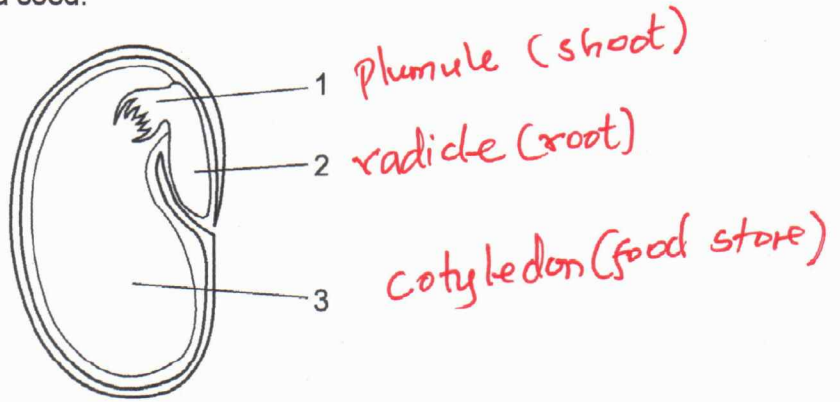 seed.
1 plumule (shoot)
2 radicle (root)
3 cotyledon (food store)